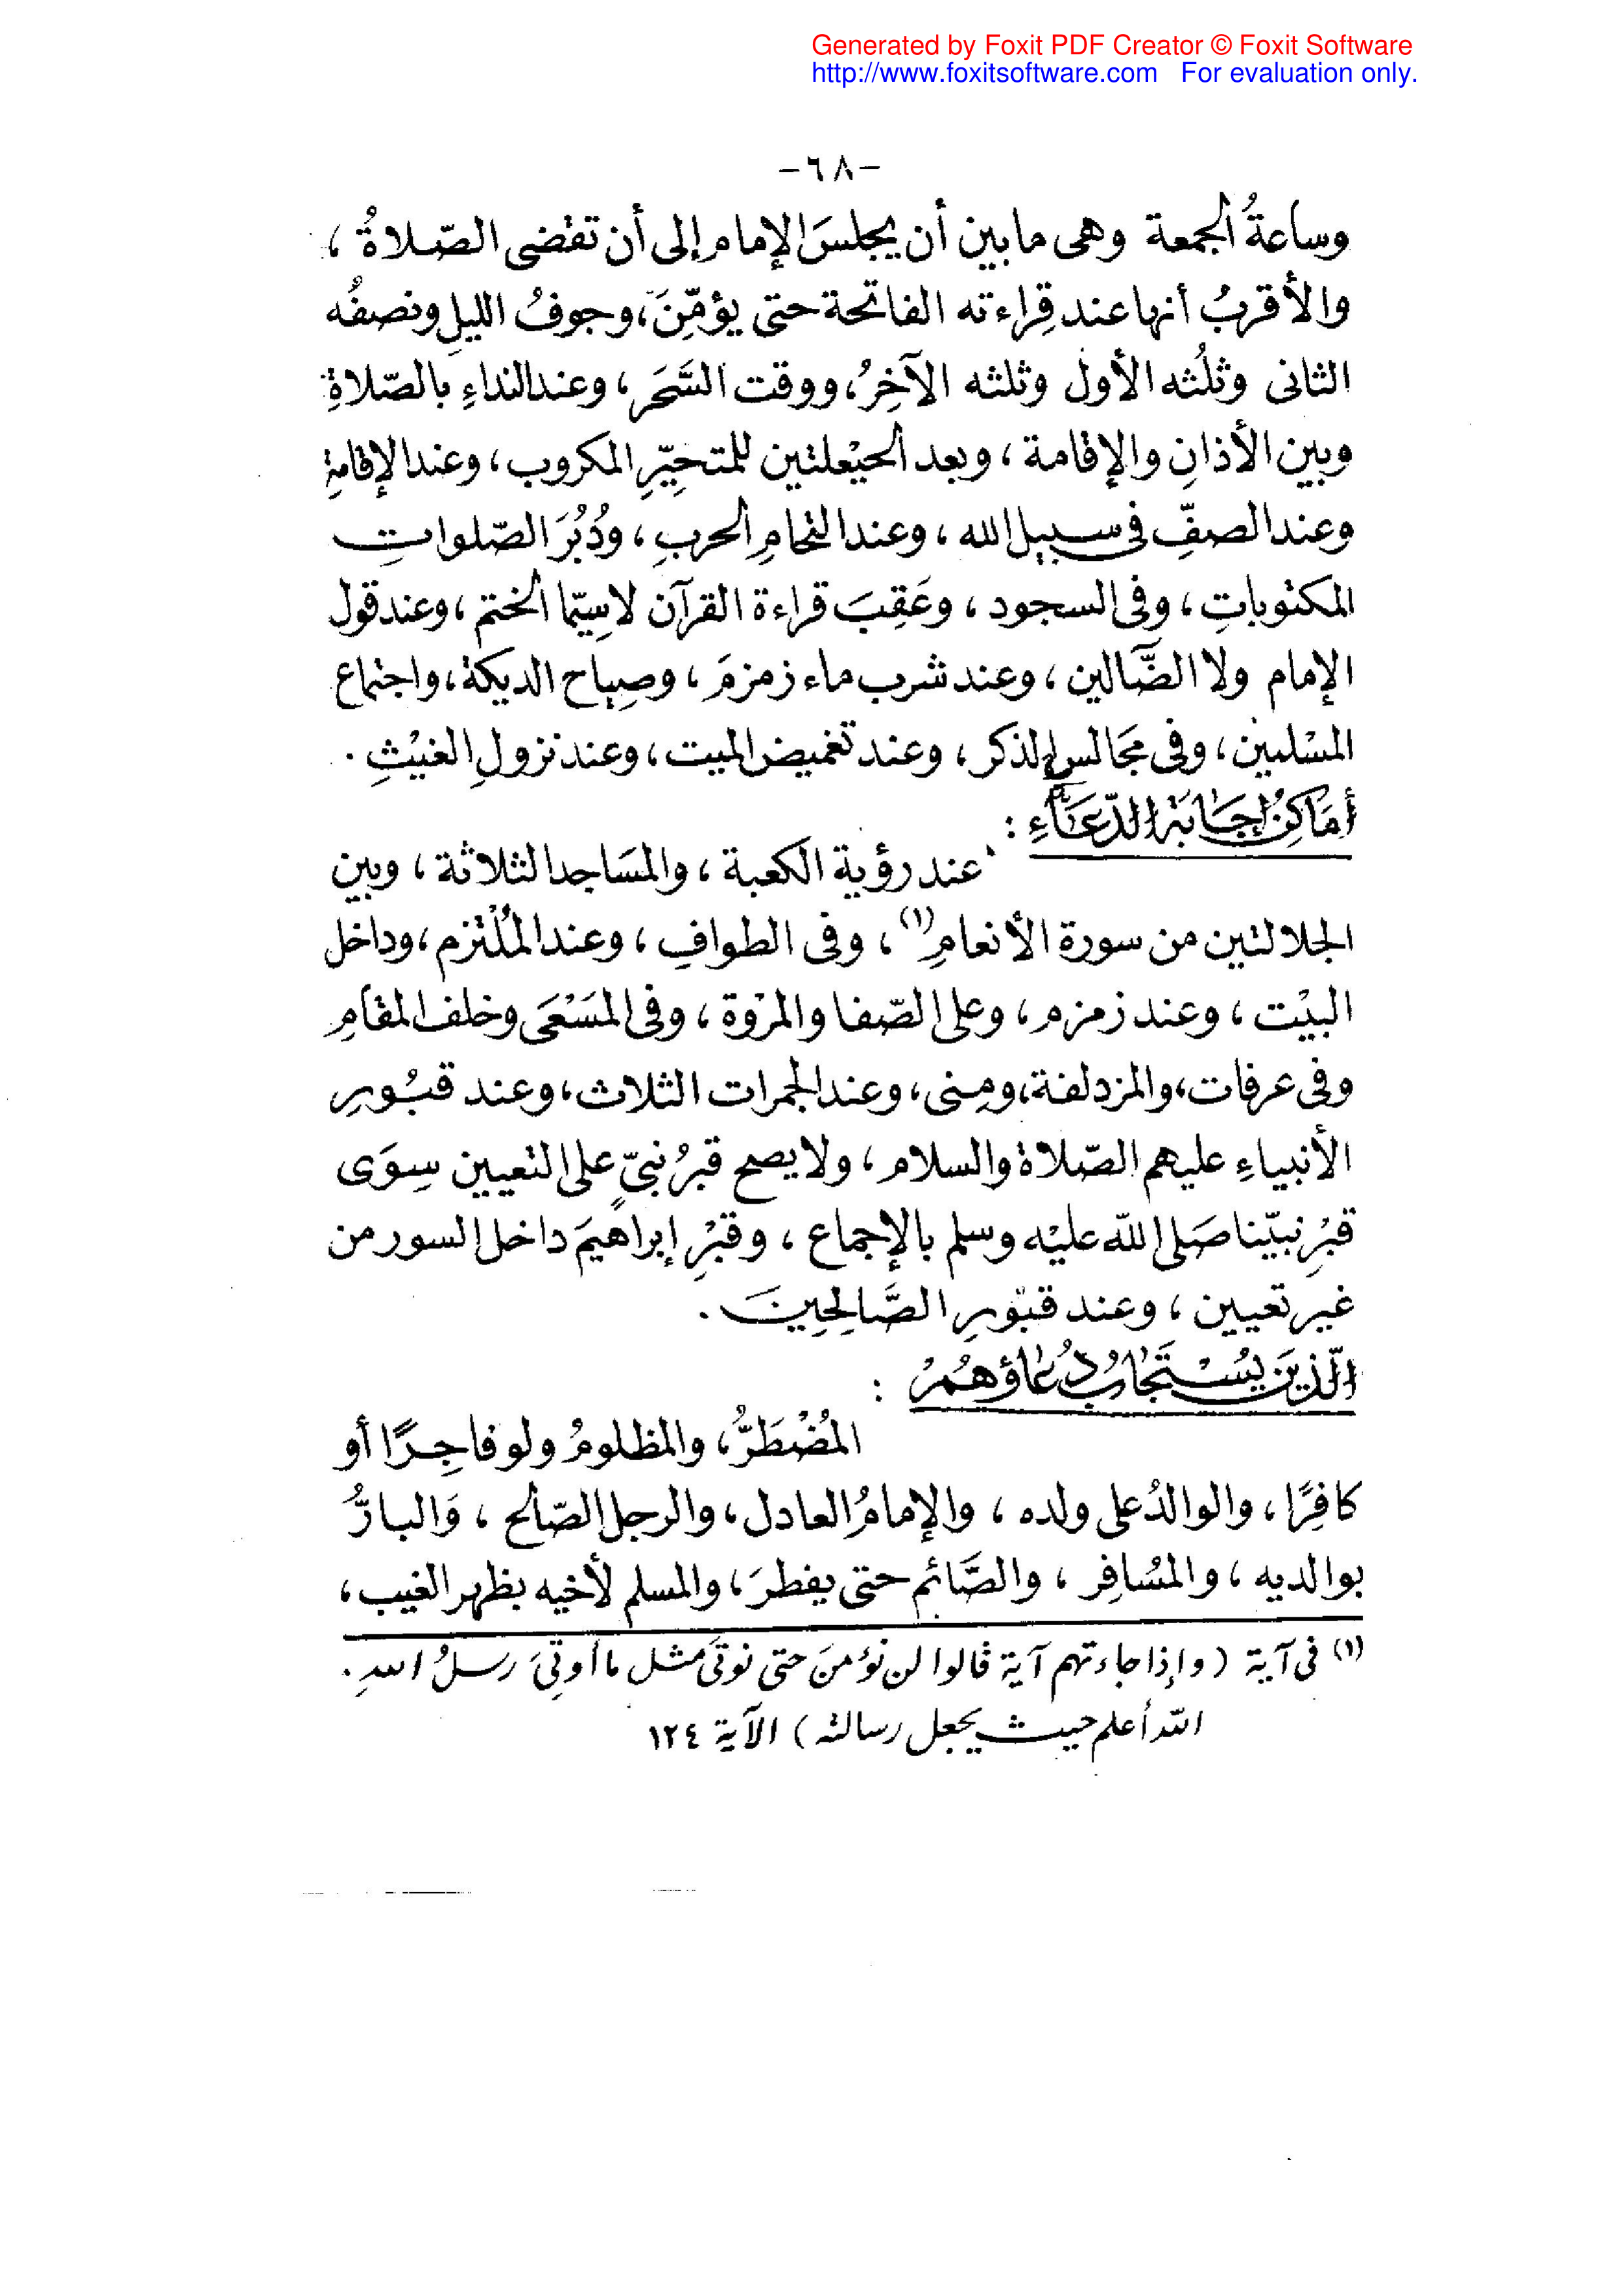 Generated by Foxit PDF Creator © Foxit Software
http://www.foxitsoftware.com For evaluation only.
-٦٨-
وساعةُ الجمعة وهى ما بين أن يجلسَ الإمام إلى أن تقضى الصّلاةُ ،
والأقربُ أنها عند قِراءته الفاتحة حتى يؤمِّنَ ، وجوفُ الليلِ ونصفُه
الثانى وثلُثه الأول وثلثه الآخِرُ ، ووقت السَّحَر ، وعند النداءِ بالصّلاةِ
وبين الأذانِ والإقامة ، وبعد الحيْعلتين للمتحيِّرِ المكروب ، وعند الإقامةِ
وعند الصفِّ فى سبيل الله ، وعند التحامِ الحربِ ، ودُبُرَ الصّلواتِ
المكتوباتِ ، وفى السجود ، وعَقِبَ قراءة القرآن لاسِيّما الختم ، وعند قول
الإمام ولا الضَّالين ، وعند شرب ماء زمزمَ ، وصِياح الديكة ، واجتماع
المسْلمين ، وفى مَجَالسِ الذكر ، وعند تغميض الميت ، وعند نزولِ الغيْثِ .
أمَاكِنُ إجَابَةِ الدّعَاءِ :
عند رؤية الكعبة ، والمسَاجد الثلاثة ، وبين
الجلالتين من سورة الأنعامِ (١) ، وفى الطوافِ ، وعند المُلْتزم ، وداخل
البيْت ، وعند زمزم ، وعلى الصّفا والمرْوة ، وفى المَسْعَى وخلف المقامِ
وفى عرفات ، والمزدلفة ، ومِنى ، وعند الجمرات الثلاث ، وعند قبُورِ
الأنبياءِ عليهم الصّلاة والسلام ، ولا يصح قبرُ نبىٍّ على التعيين سِوَى
قبْرِ نبيّنا صَلى اللّه عليْه وسلم بالإجماع ، وقبْرِ إبراهيمَ داخل السور من
غير تعيين ، وعند قبُورِ الصَّالِحِينَ .
الّذينَ يُسْتَجَابُ دُعَاؤهُمْ :
المُضْطَرُّ ، والمظلومُ ولو فاجِرًا أو
كافِرًا ، والوالدُ على ولده ، والإمامُ العادل ، والرجل الصّالح ، وَالبارُّ
بوالديه ، والمسُافِر ، والصَّائم حتى يفطرَ ، والمسلم لأخيه بظهر الغيب ،
(١) فى آية ( وإذا جاءتهم آية قالوا لن نؤمنَ حتى نوتَى مثل ما أوتِىَ رسلُ اللهِ .
اللّه أعلم حيث يجعل رسالته ) الآية ١٢٤